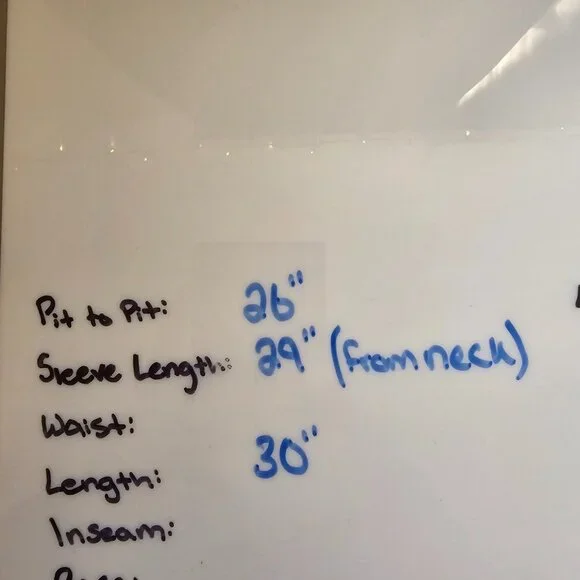 Pit to Pit: 26"
Sleeve Length: 29" (from neck)
Waist:
Length: 30"
Inseam: